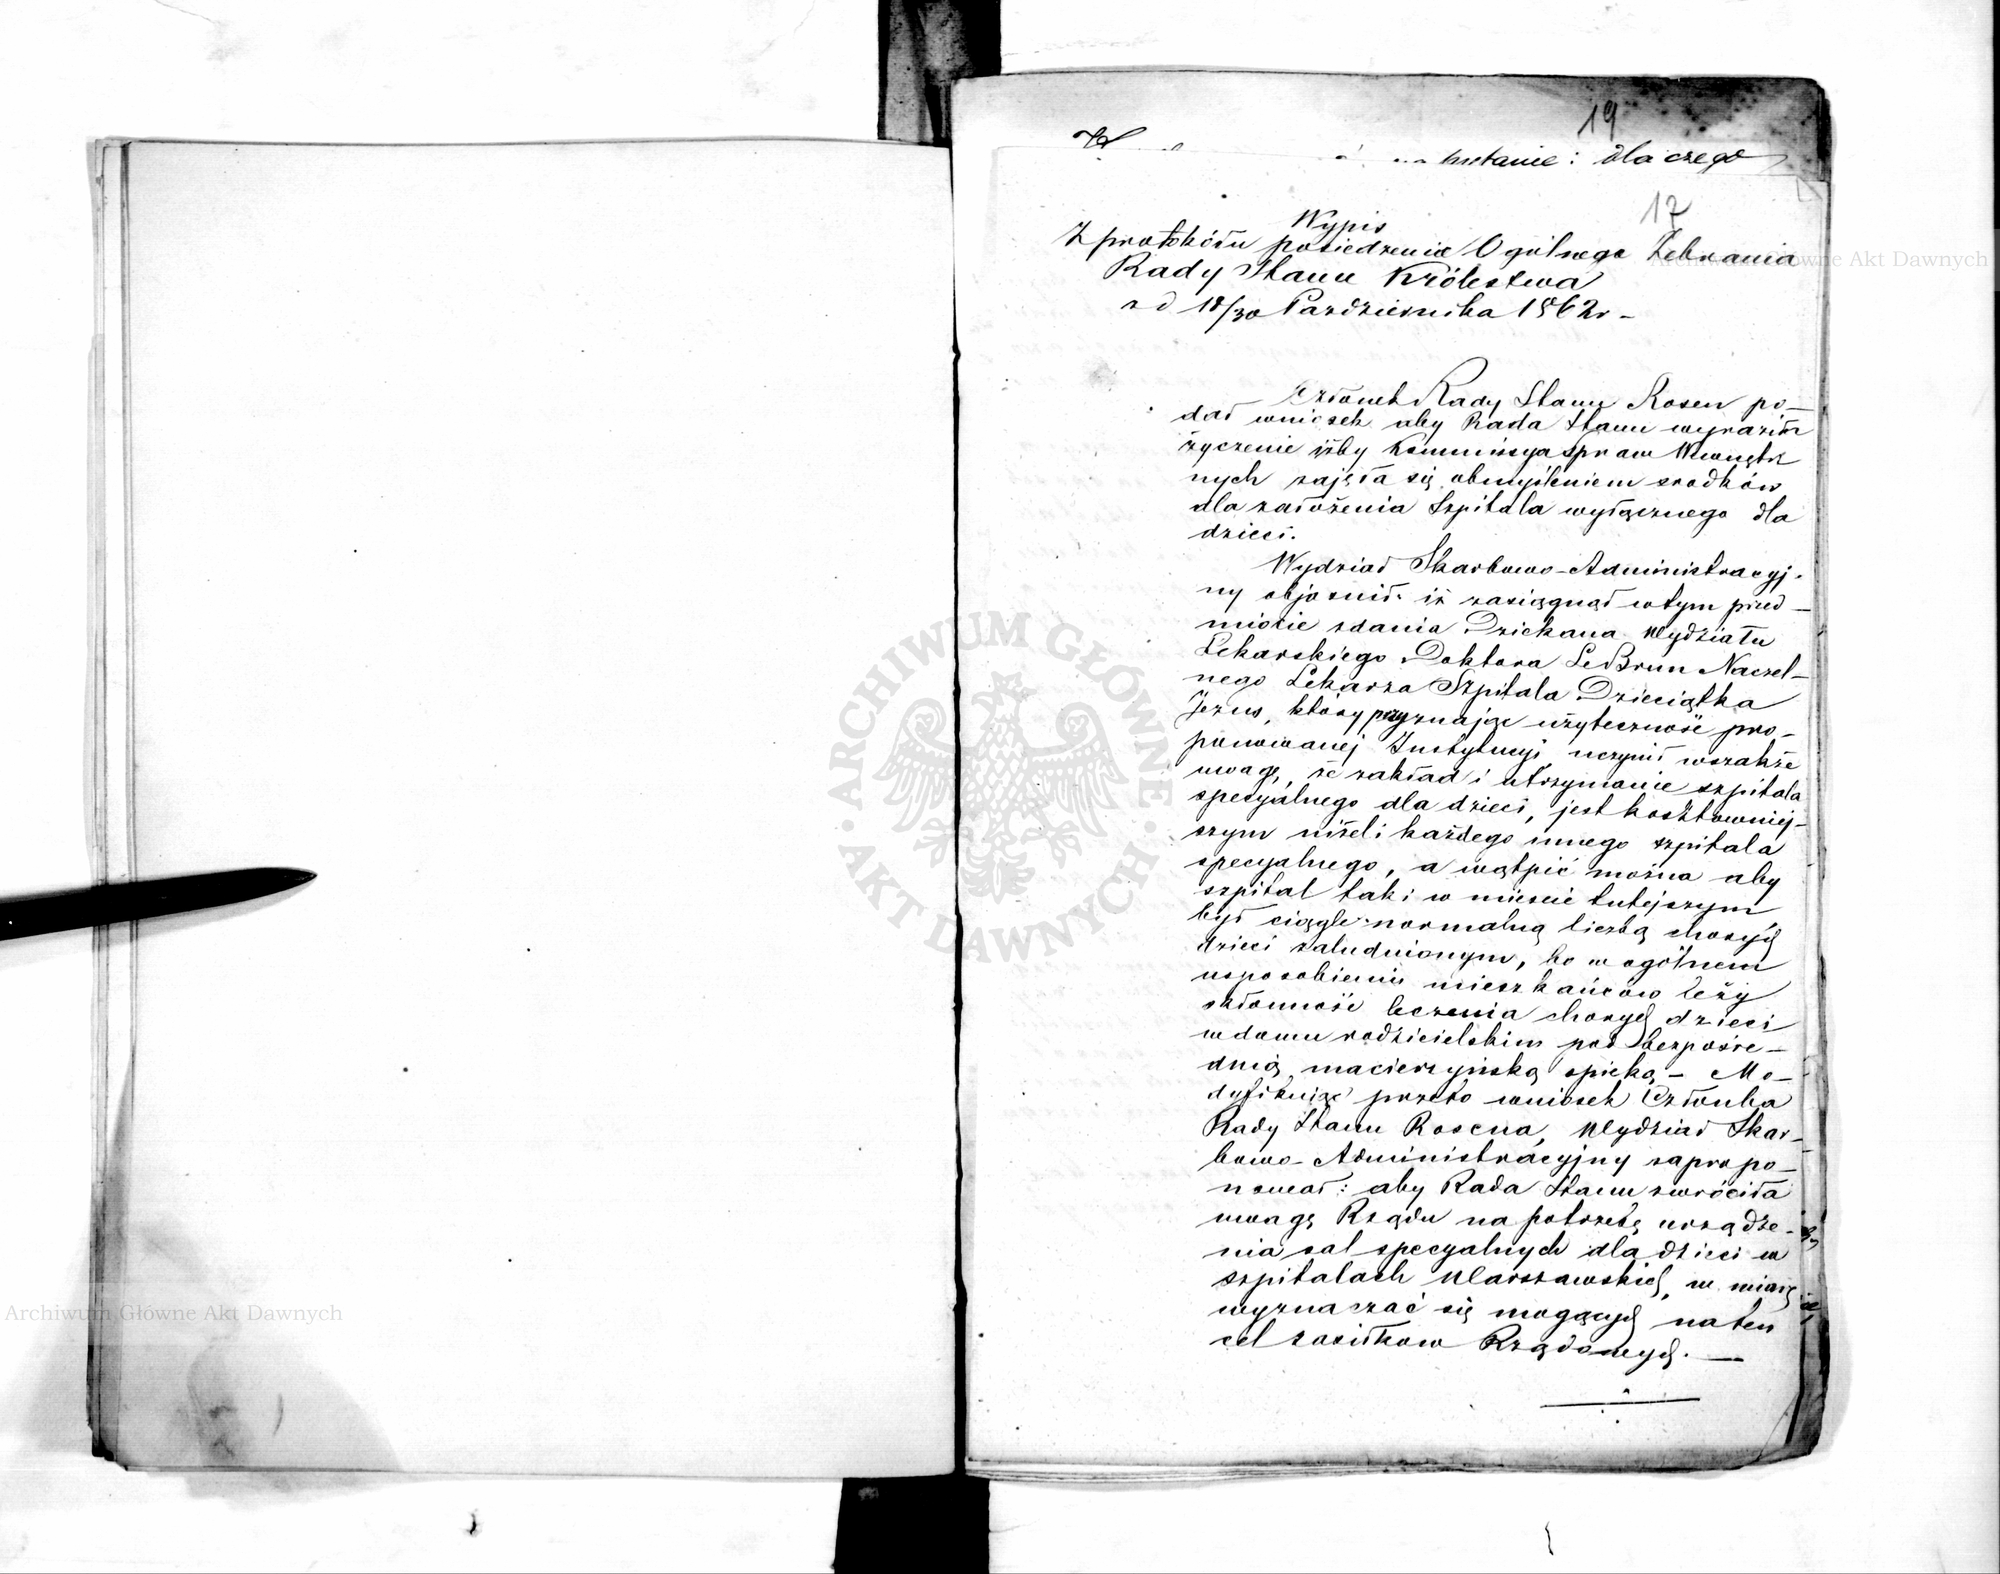 19
hetanie: dlaczego
17
Wypis
Z protokółu posiedzenia Ogólnego Zebrania
Rady Stanu Królestwa
z d 18/30 Października 1862 r -
Członek Rady Stanu Rosen po-
dał wniosek aby Rada Stanu wyraziła
życzenie iżby Kommissya Spraw Wewnętrz
nych zajęła się obmyśleniem srodków
dla założenia Szpitala wyłącznego dla
dzieci.
Wydział Skarbowo-Administracyj-
ny objasnił iż zasięgnął w tym przed-
miocie zdania Dziekana Wydziału
Lekarskiego Doktora LeBrun Naczel-
nego Lekarza Szpitala Dzieciątka
Jezus, który przyznając użyteczność pro-
ponowanej Instytucyi uczynił wszakże
uwagę, że zakład i utrzymanie szpitala
specyalnego dla dzieci, jest kosztowniej-
szym niżeli każdego innego szpitala
specyalnego, a wątpić można aby
szpital taki w mieście tutejszym
był ciągle normalną liczbą chorych
dzieci zaludnionym, bo w ogólnem
usposobieniu mieszkańców leży
skłonność leczenia chorych dzieci
w domu rodzicielskim pod bezpośre-
dnią macierzyńską opieką - Mo-
dyfikując przeto wniosek Członka
Rady Stanu Rosena, Wydział Skar-
bowo-Administracyjny zapropo-
nował: aby Rada Stanu zwróciła
uwagę Rządu na potrzebę urządze-
nia sal specyalnych dla dzieci w
szpitalach Warszawskich, w miarę
wyznaczać się mogących na ten
cel zasiłkow Rządowych. —
ARCHIWUM GŁÓWNE AKT DAWNYCH
Archiwum Główne Akt Dawnych
Archiwum Główne Akt Dawnych